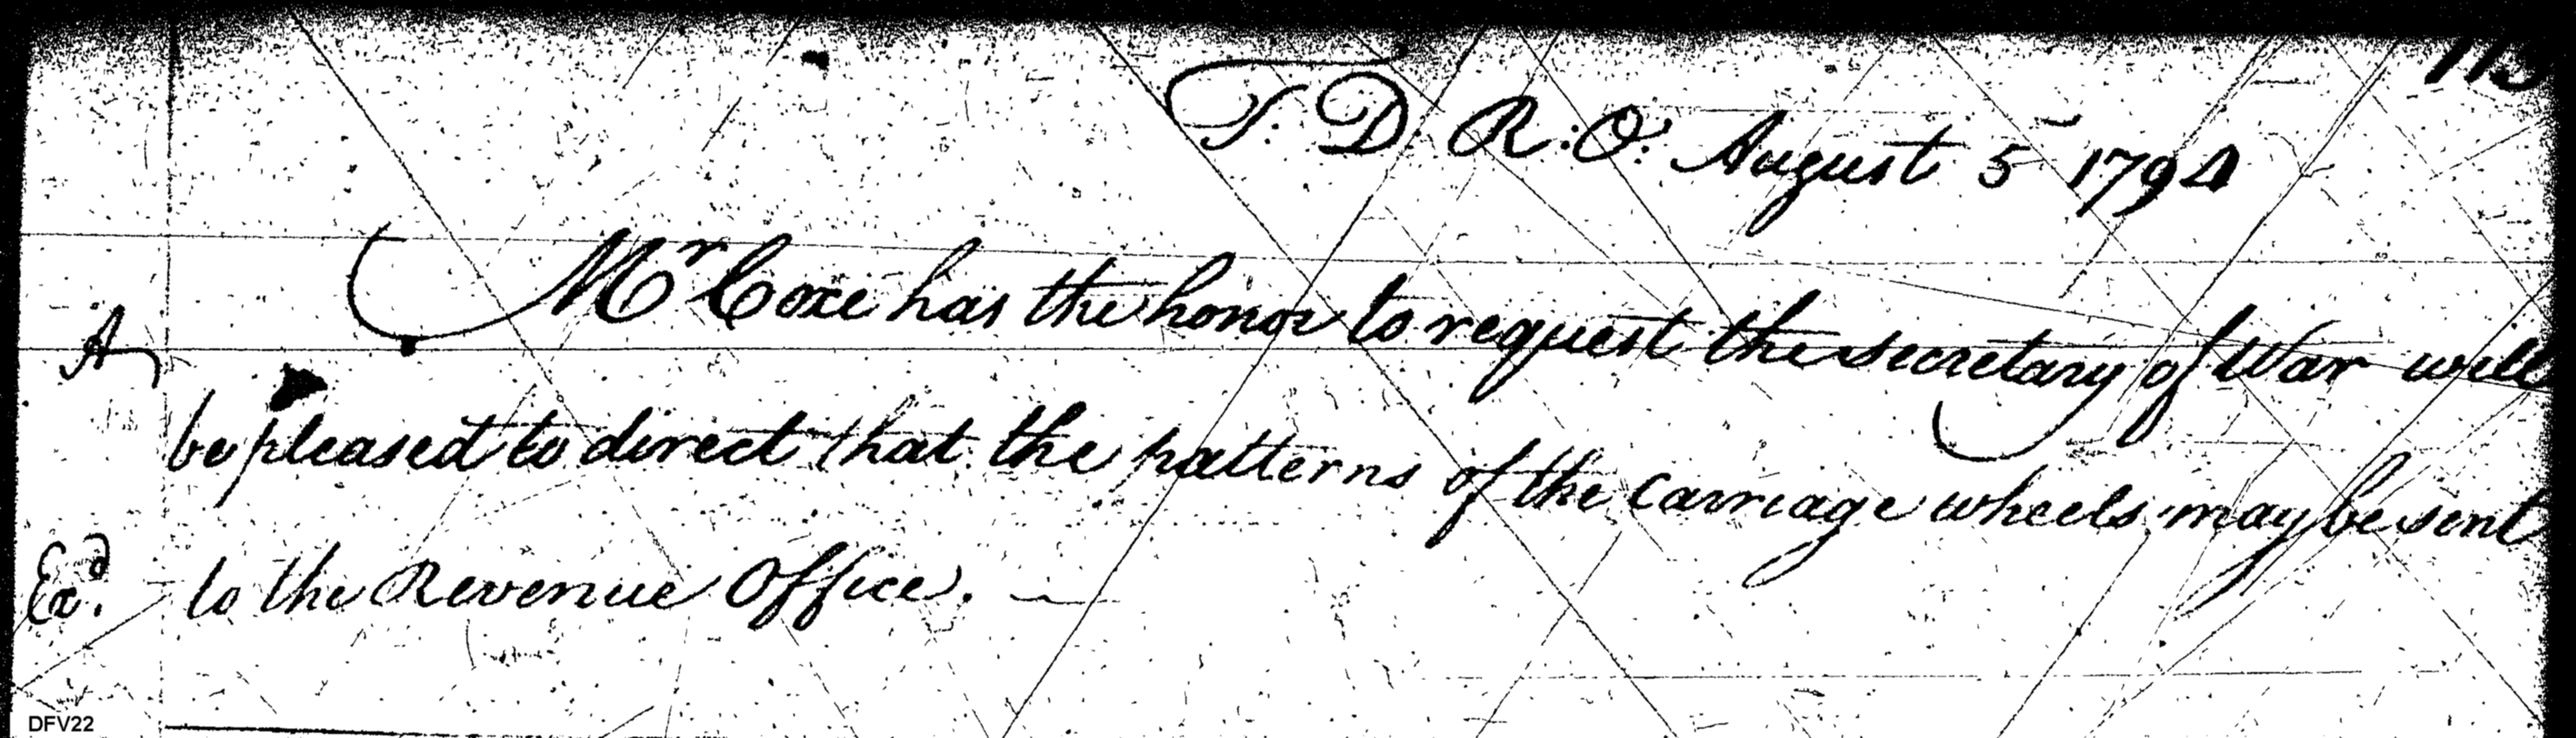 T: D. R: O: August 5 1794
Mr Coxe has the honor to request the secretary of War will
A
be pleased to direct that the patterns of the carriage wheels may be sent
Exd. to the Revenue Office.
DFV22